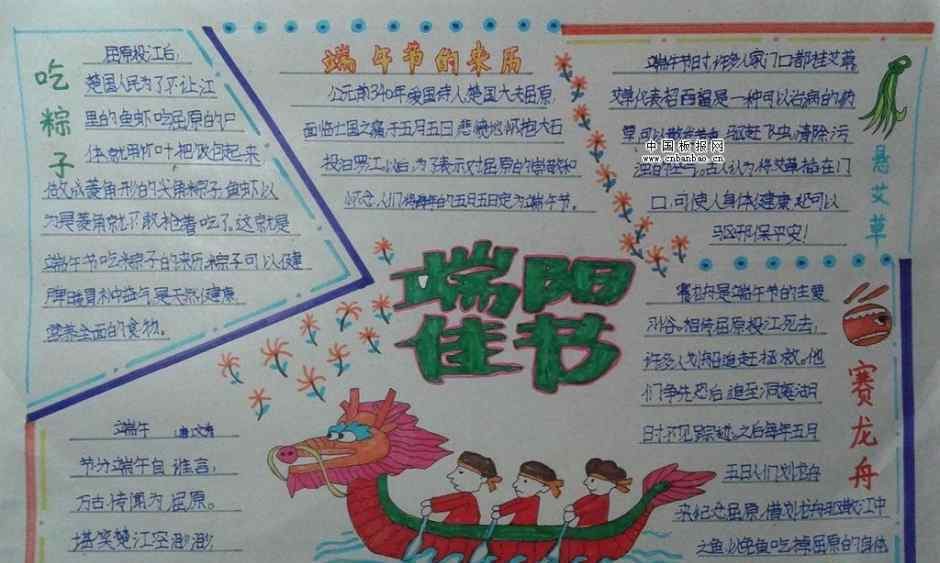 吃粽子
屈原投江后,
楚国人民为了不让江
里的鱼虾吃屈原的尸
体就用竹叶把饭包起来
做成菱角形的尖角粽子鱼虾以
为是菱角就不敢抢着吃了。这就是
端午节吃粽子的来历粽子可以健
脾暗胃补中益气是天然健康
营养全面的食物。
端午节的来历
公元前340年爱国诗人楚国大夫屈原,
面临亡国之痛于五月五日悲愤地怀抱大石
投汨罗江以后为了表示对屈原的崇敬和
怀念人们将每年的五月五日定为端午节。
悬艾草
端午节时许多人家门口都挂艾草
艾草代表招百福是一种可以治病的药
草可以散发
驱赶飞虫清除污
认为将艾草插在门
口,可使人身体健康还可以
驱邪保平安!
中国板报网
www.cnbanbao.cn
端阳
佳节
赛龙舟
赛龙舟是端午节的主要
习俗。相传屈原投江死去,
许多人划船追赶拯救。他
们争先恐后追至洞庭湖
时不见踪迹。之后每年五月
五日人们划龙舟
来纪念屈原借划龙舟驱散江中
之鱼以免鱼吃掉屈原的身体
端午 唐文秀
节分端午自谁言,
万古传闻为屈原。
堪笑楚江空渺渺,